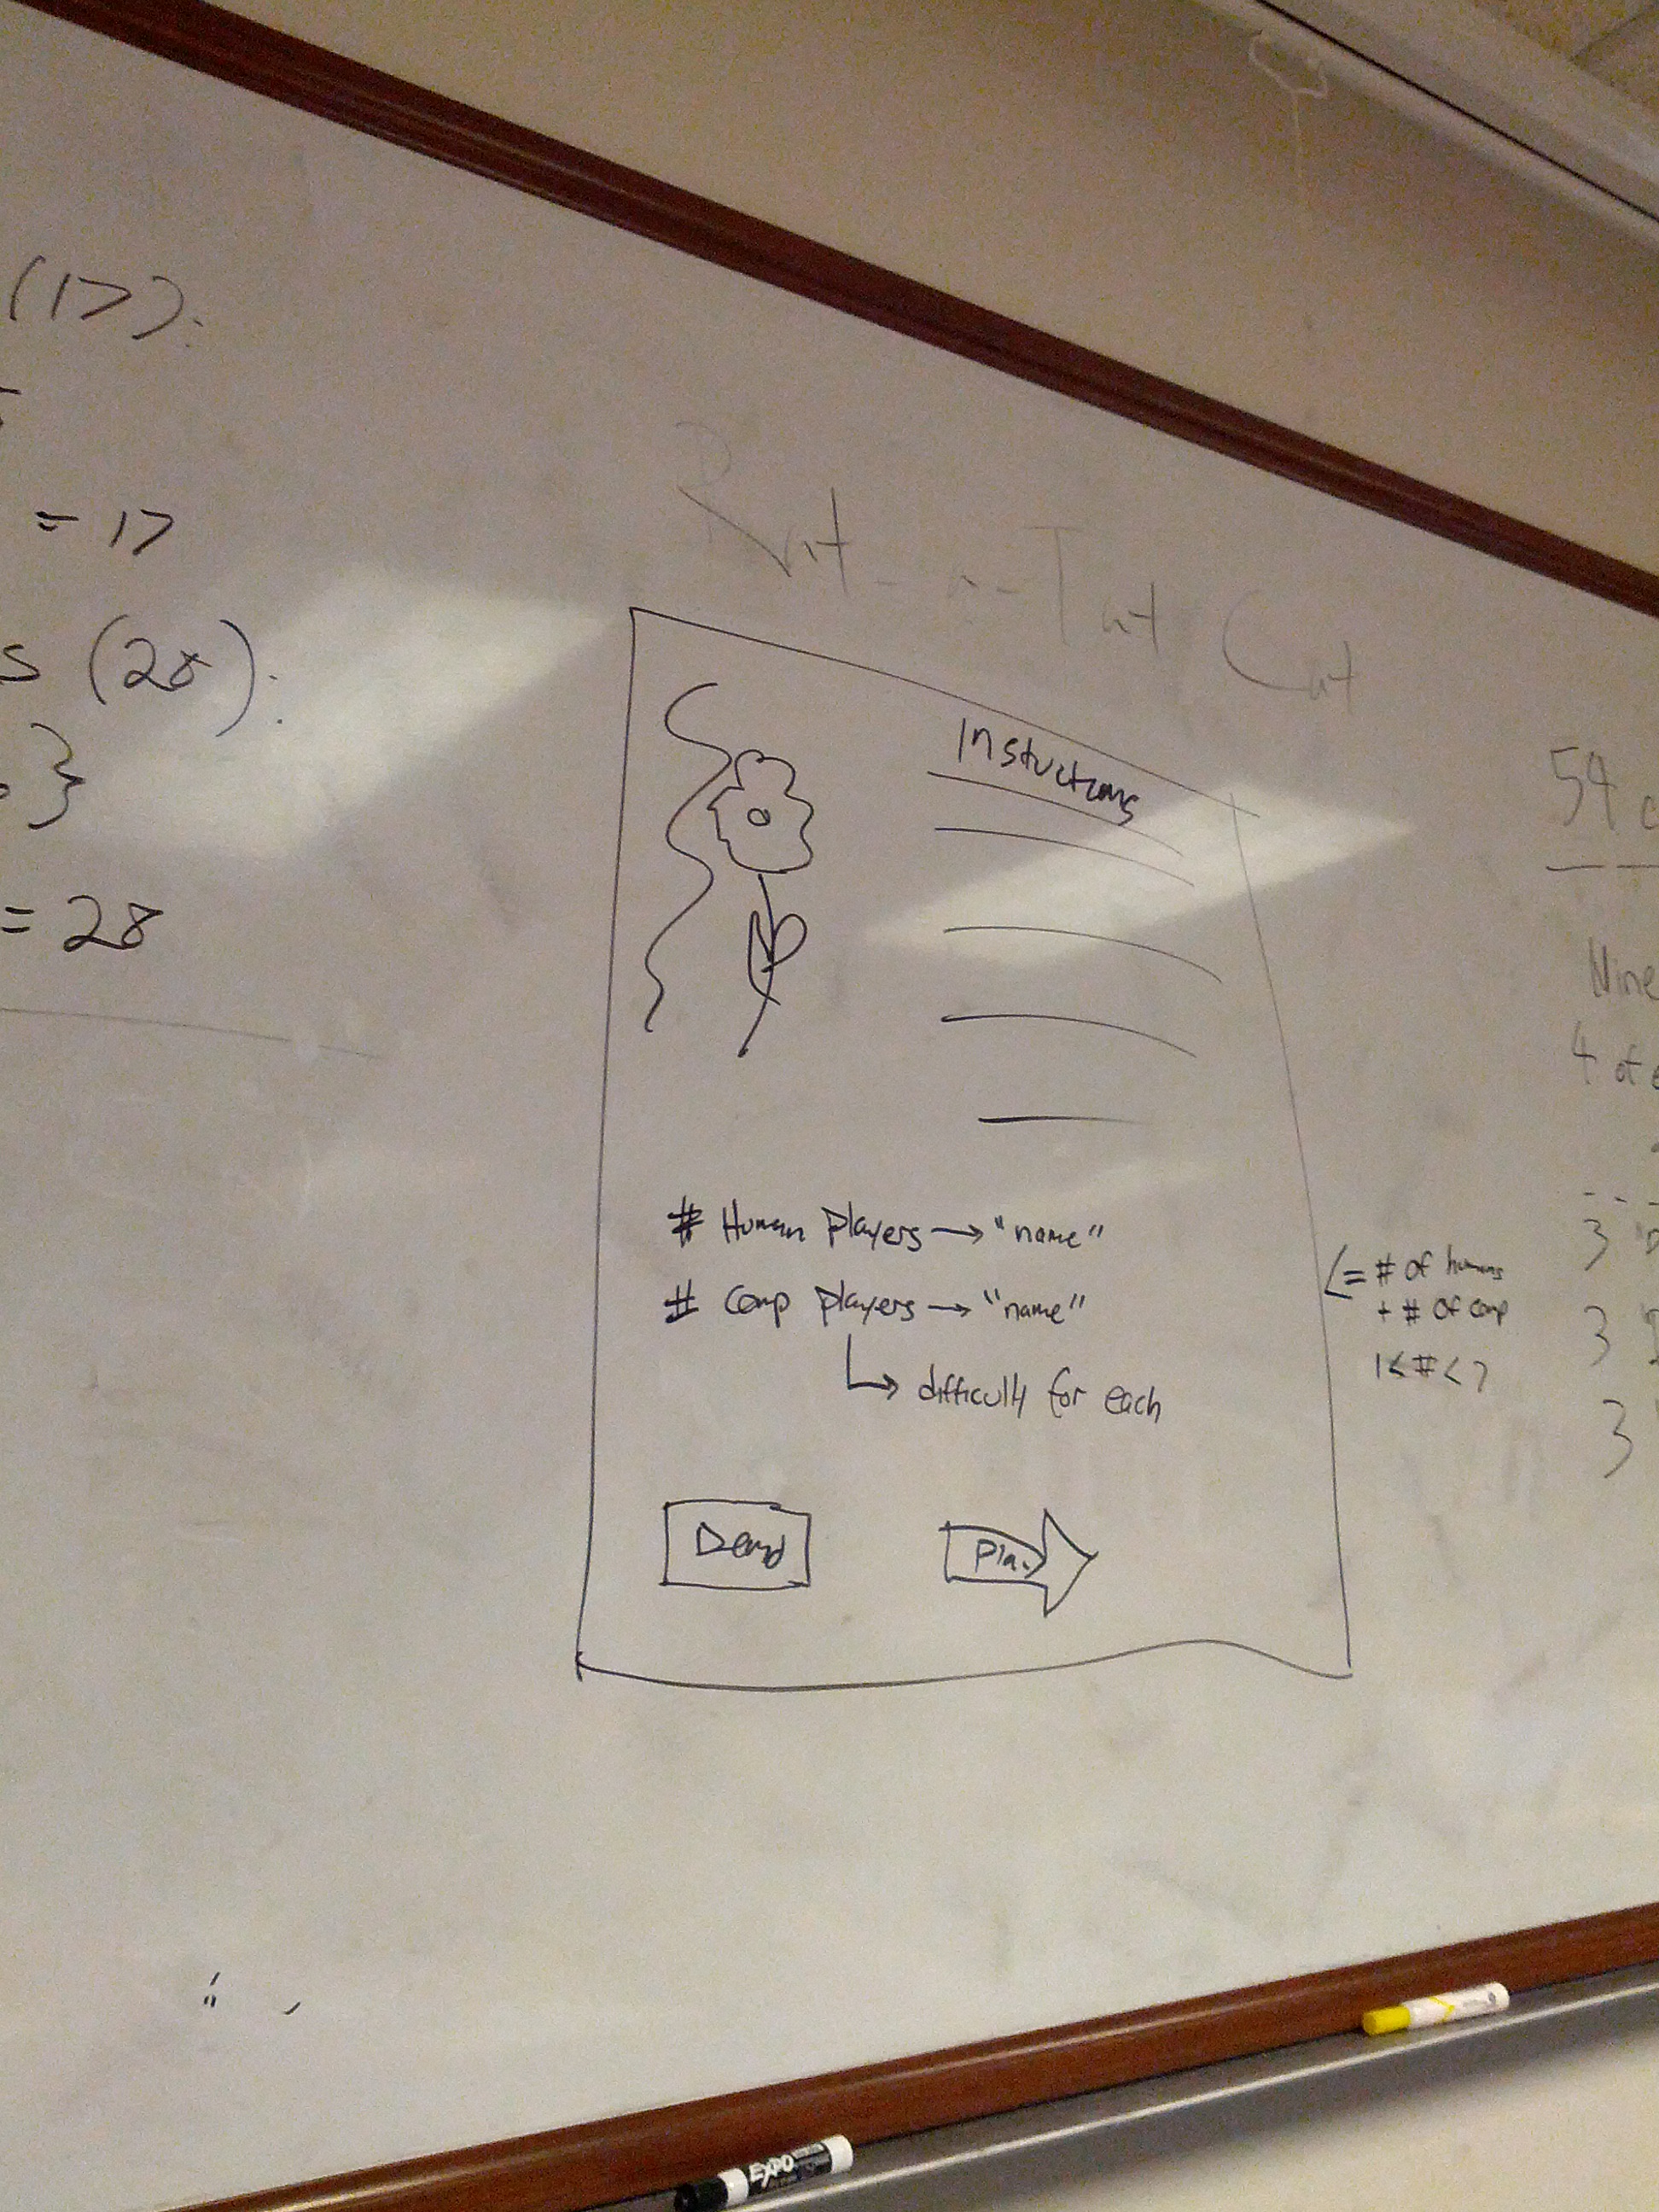 (17):
= 17
s (28):
}
= 28
Rat-a-Tat Cat
Instuctions
# Human Players → "name"
# Comp Players → "name"
difficulty for each
Demo
Play
<= # of humans
+ # of comp
1 < # < 7
54 c
Nine
4 of e
3 "D
3
3
EXPO